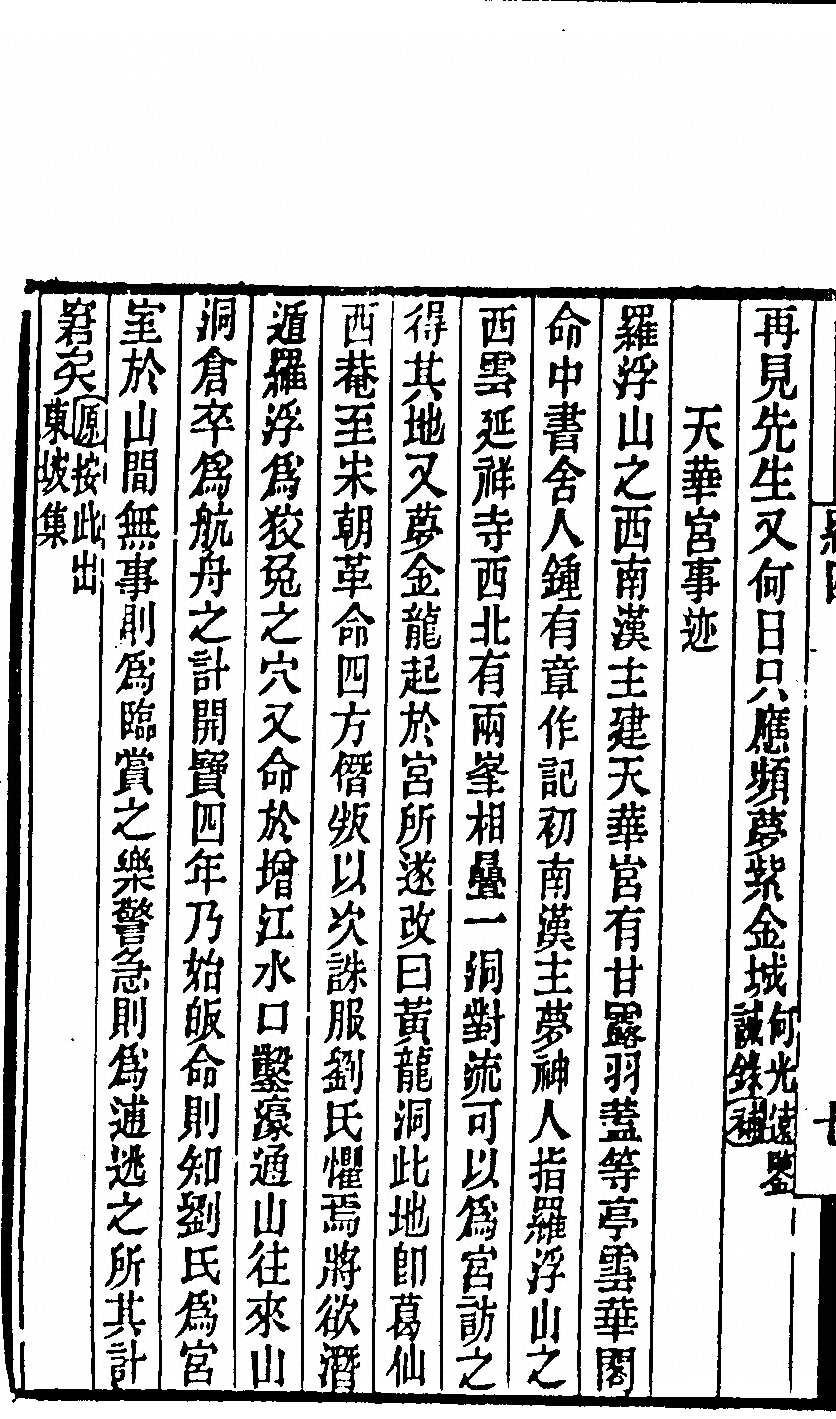 再見先生又何日只應頻夢紫金城何光遠鑒誡錄補
天華宮事迹
羅浮山之西南漢主建天華宮有甘露羽蓋等亭雲華閣
命中書舍人鍾有章作記初南漢主夢神人指羅浮山之
西雲延祥寺西北有兩峯相疊一洞對流可以為宮訪之
得其地又夢金龍起於宮所遂改曰黃龍洞此地卽葛仙
西菴至宋朝革命四方僭叛以次誅服劉氏懼焉將欲潛
遁羅浮為狡兎之穴又命於增江水口鑿濠通山往來山
洞倉卒為航舟之計開寶四年乃始皈命則知劉氏為宮
室於山間無事則為臨賞之樂警急則為逋逃之所其計
窘矣原按此出東坡集